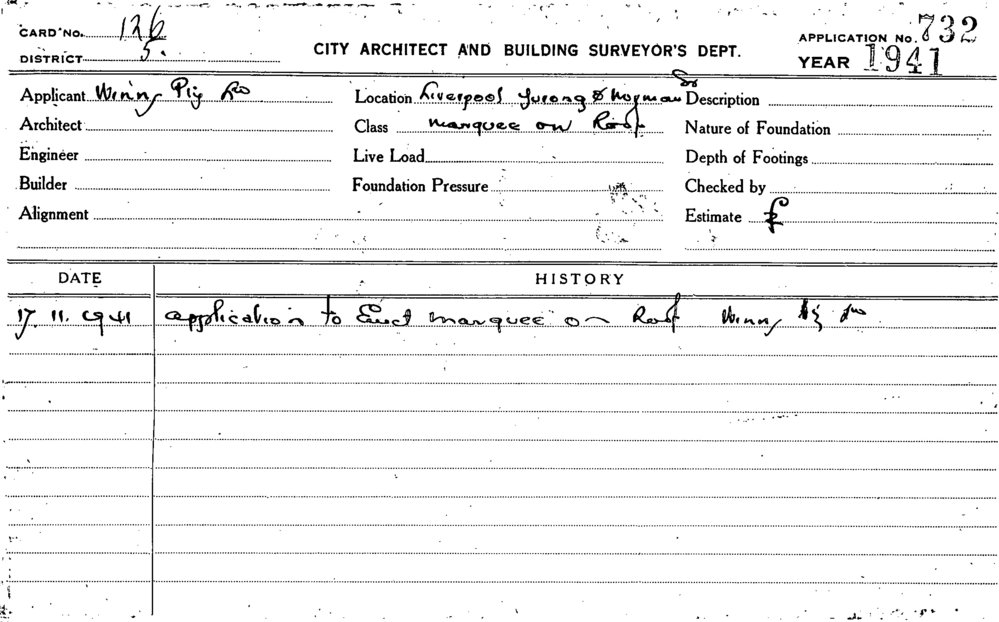 CARD No. 126
DISTRICT 5.
CITY ARCHITECT AND BUILDING SURVEYOR'S DEPT.
APPLICATION No. 732
YEAR 1941
Applicant Winns Pty Ld
Location Liverpool Yurong & Norman Sts
Description
Architect
Class marquee on Roof
Nature of Foundation
Engineer
Live Load
Depth of Footings
Builder
Foundation Pressure
Checked by
Alignment
Estimate £
DATE HISTORY
17. 11. 1941 application to Erect marquee on Roof Winns